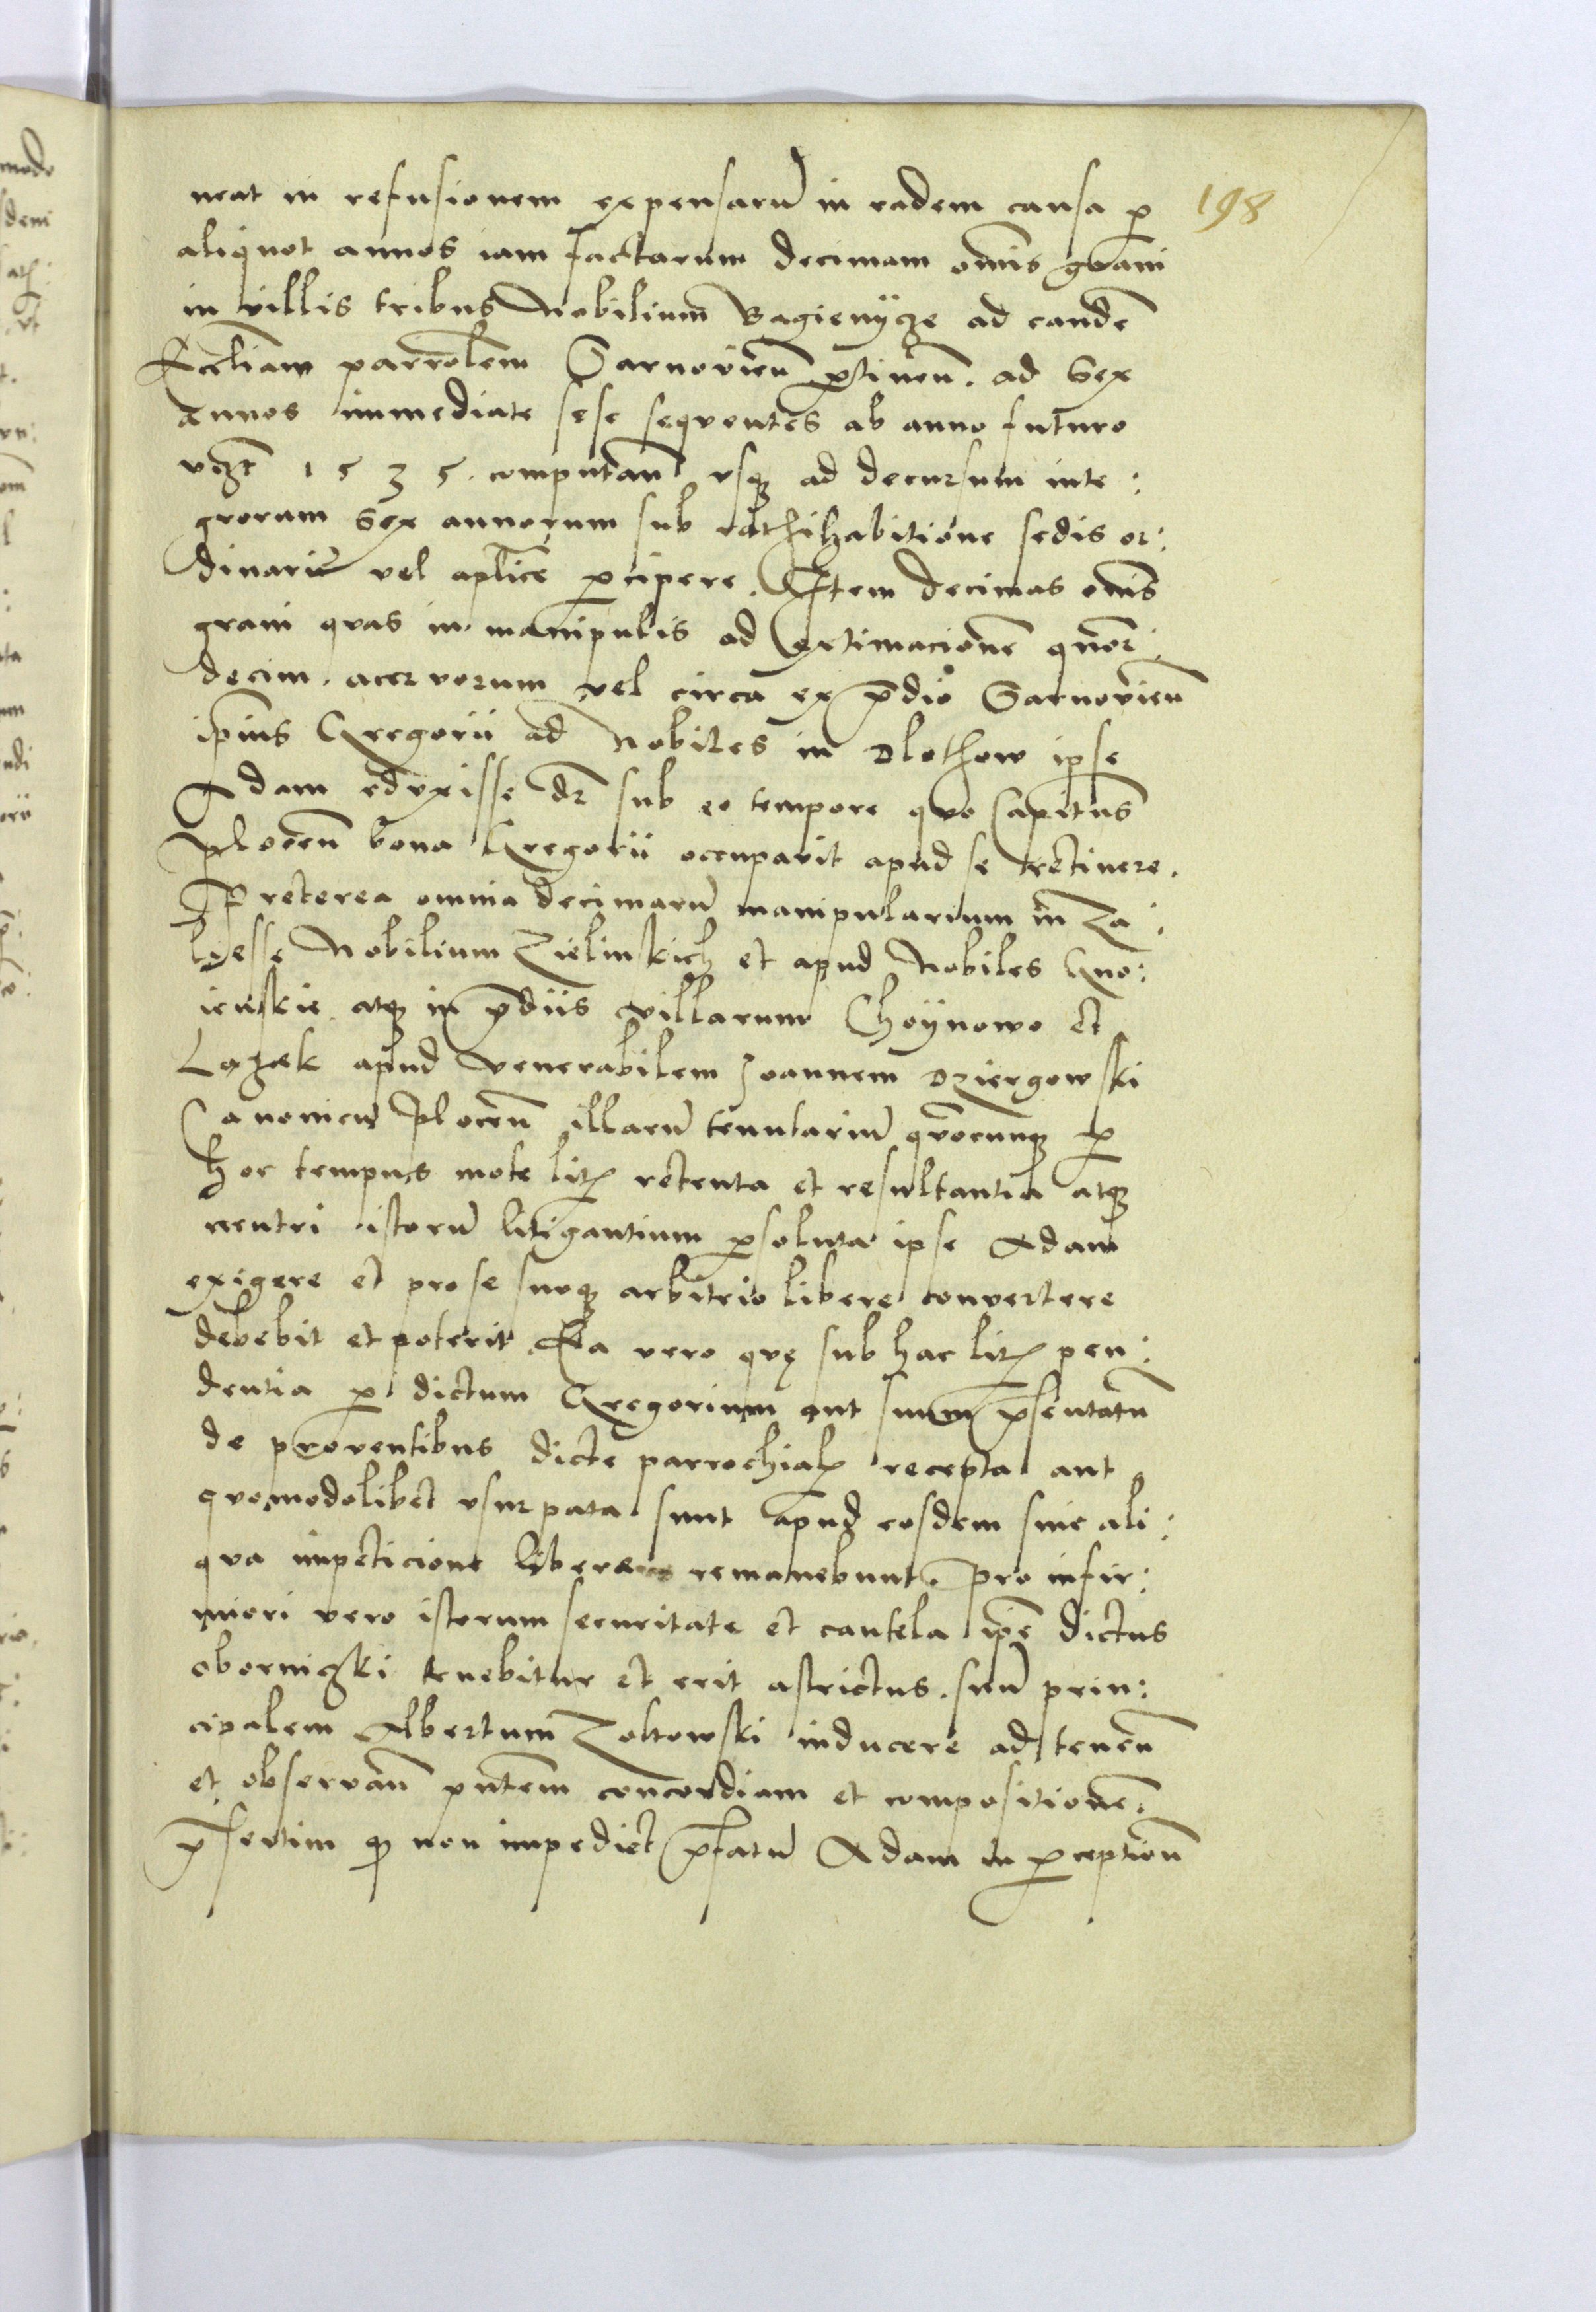 198
neat in refusionem expensarũ in eadem causa ꝑ
aliquot annos iam factarum decimam om̃is grani
in villis tribus Nobilium Bagienycze ad eandẽ
Eccłiam parrołem Sarnovien̄ ꝑtinen̄. ad sex
annos immediate sese sequentes ab anno futuro
vizt 1535. computan̄ usqꝫ ad decursum inte:
grorum sex annorum sub rathihabitione sedis or:
dinarie vel aplice ꝑcipere. Item decimas om̃is
grani quas in manipulis ad extimacionẽ quor:
decim. acervorum vel circa ex p̄dio Sarnovien̄
ip̄ius Gregorii ad Nobiles in Dlothow ipse
Adam eduxisse dr̄ sub eo tempore quo Capitūs
Plocen̄ bona Gregorii occuparit apud se retinere.
Preterea omnia decimarũ manipularium in Za:
lyesse Nobilium Zielinskich et apud Nobiles Gno:
ienskie atqꝫ in p̄diis villarum Choynowo et
Lazek apud venerabilem Joannem Dziergowski
Canonicũ Plocen̄ illarũ tenutariũ quocunqꝫ ꝑ
hoc tempus mote litis retenta et resultantia atqꝫ
neutri istorũ litigantium ꝑsoluta ipse Adam
exigere et pro se suoqꝫ arbitrio libere convertere
debebit et poterit. Ea vero quę sub hac litis pen:
dentia ꝑ dictum Gregorium aut suum p̄sentatũ
de proventibus dicte parrochialis recepta aut
quomodolibet usurpata sunt apud eosdem sine ali:
qua impeticione libera remanebunt. Pro infir:
miori vero istorum securitate et cautela ip̄e dictus
Obornicski tenebitur et erit astrictus. suũ prin:
cipalem Albertum Zoltowski inducere ad tenen̄
et observan̄ pn̄tem concordiam et compositionẽ.
p̄sertim qꝫ non impediet p̄fatũ Adam in ꝑception̄